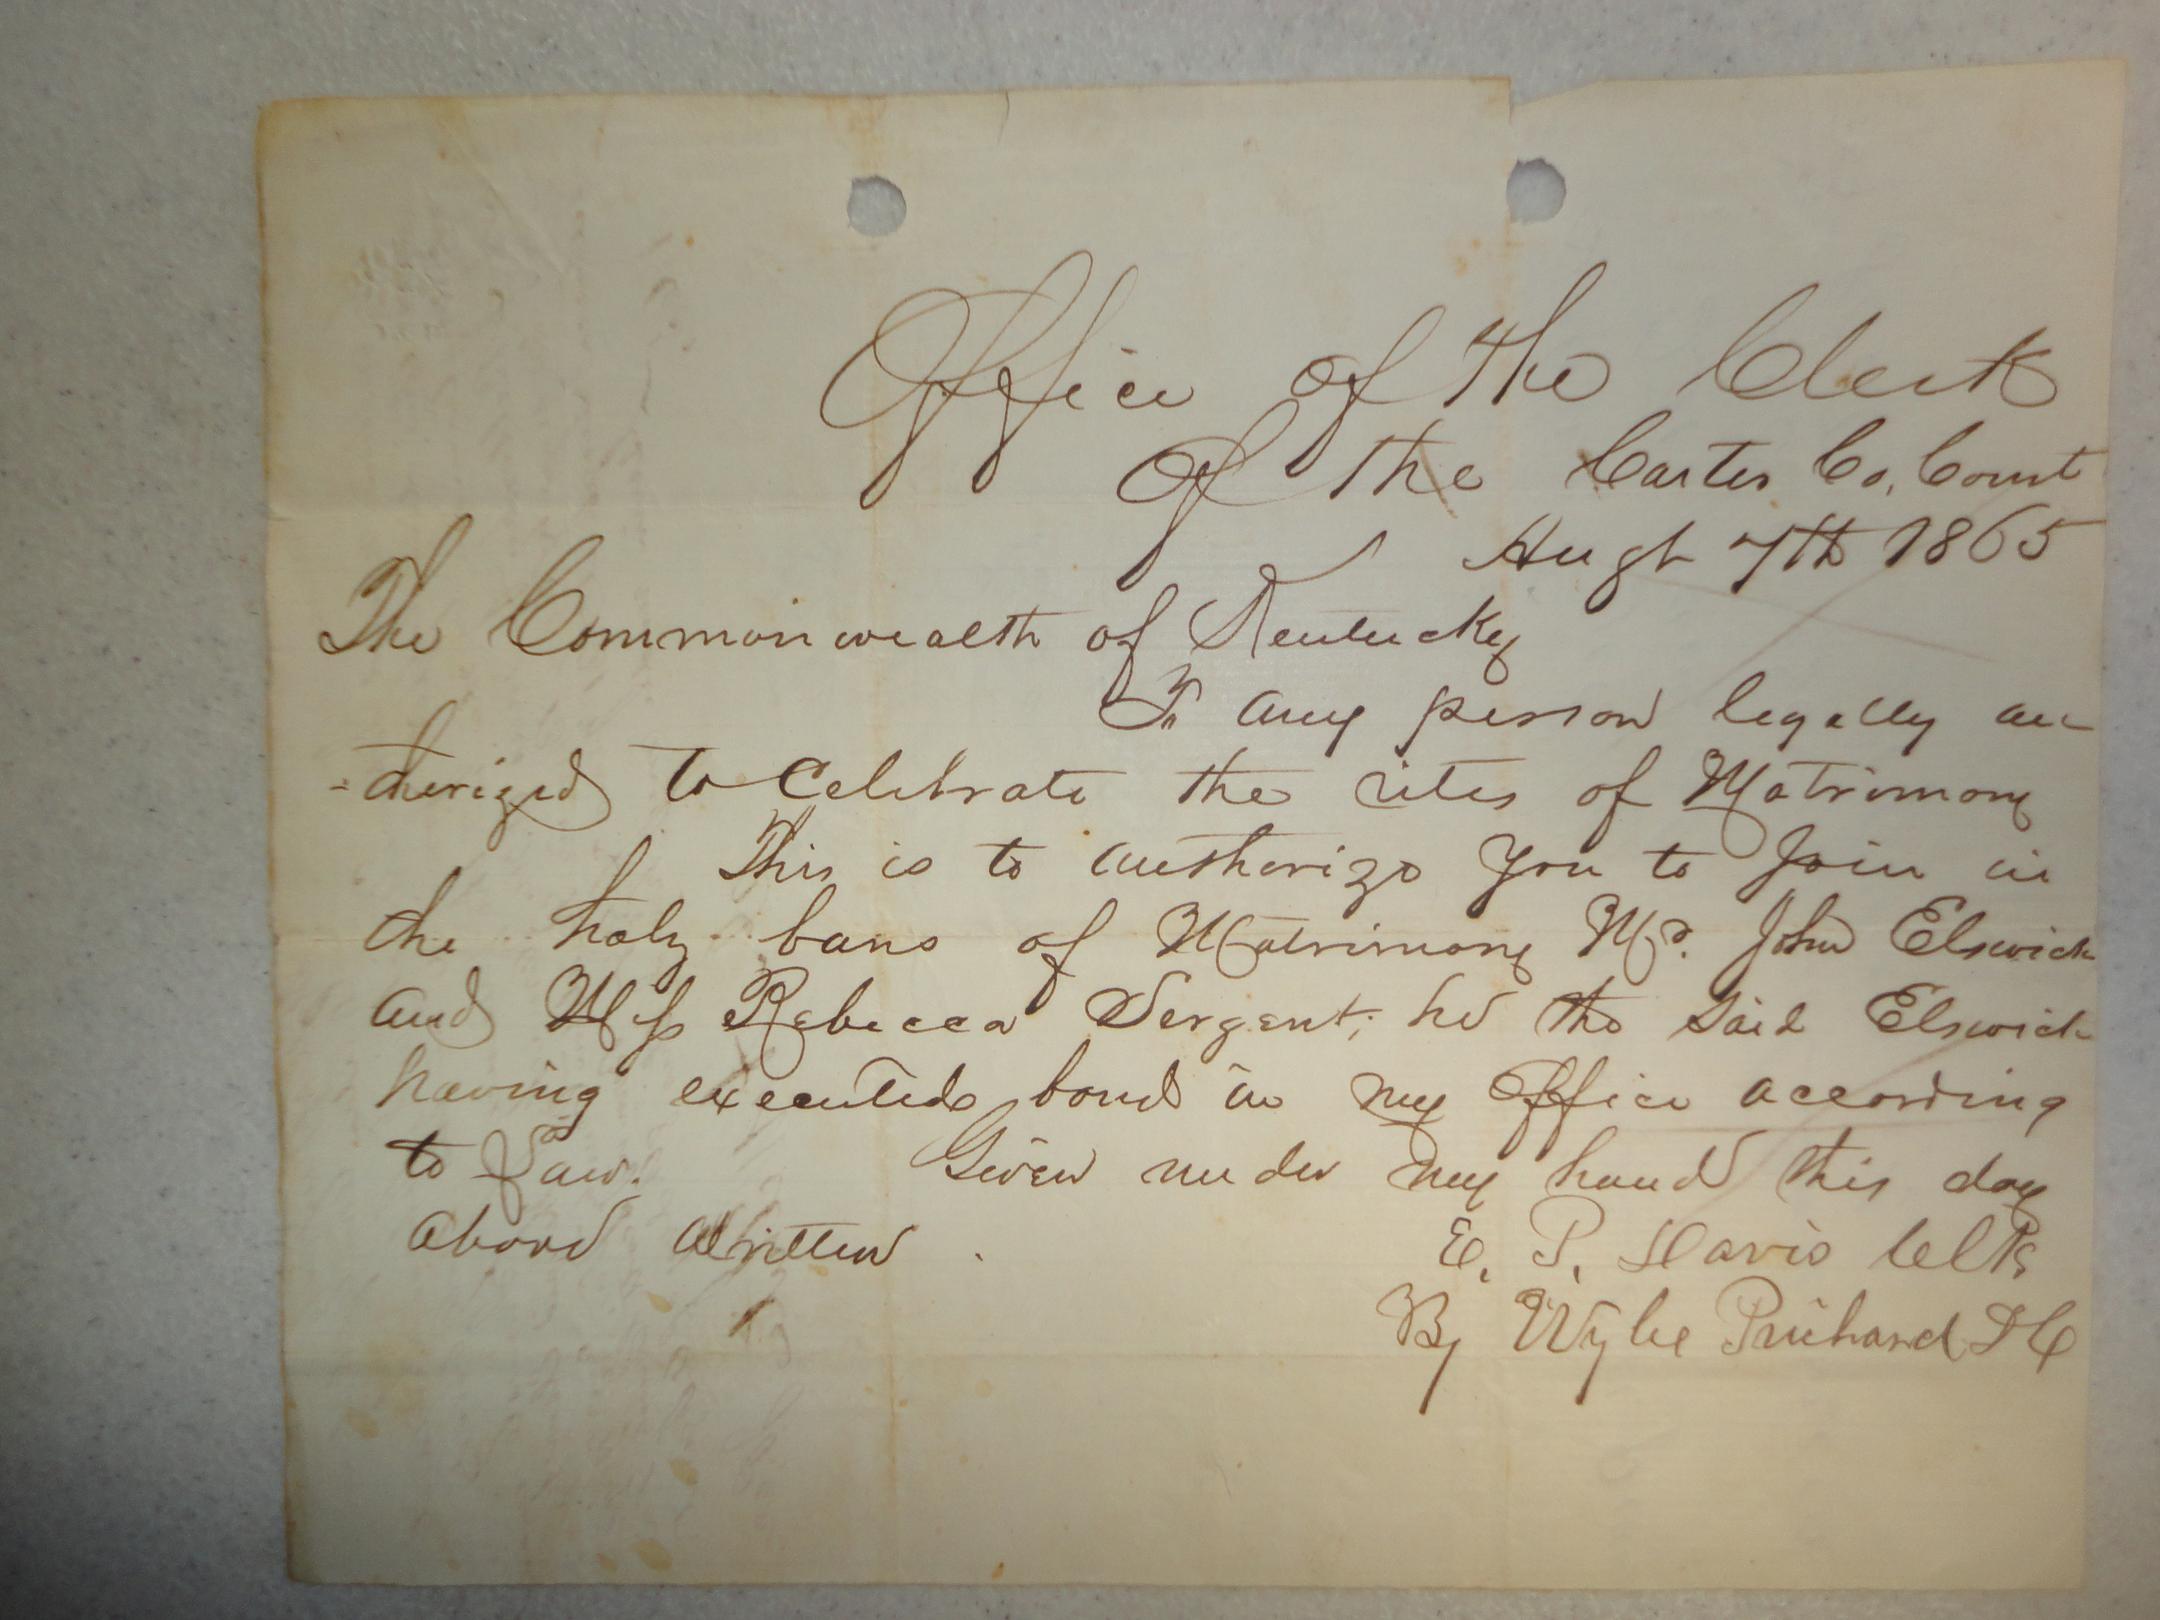 Office of the Clerk
Of the Carter Co, Court
Augt 7th 1865
The Commonwealth of Kentucky
To any person legally au-
-therized to Celebrate the rites of Matrimony
This is to authorize you to Join in
the holy bans of Matrimony Mr. John Elswick
and Miss Rebecca Sergent, he the said Elswick
having executed bond in my Office according
to Law. Given under my hand this day
above written.
E. P. Davis Clk
By Wylie Prichard DC